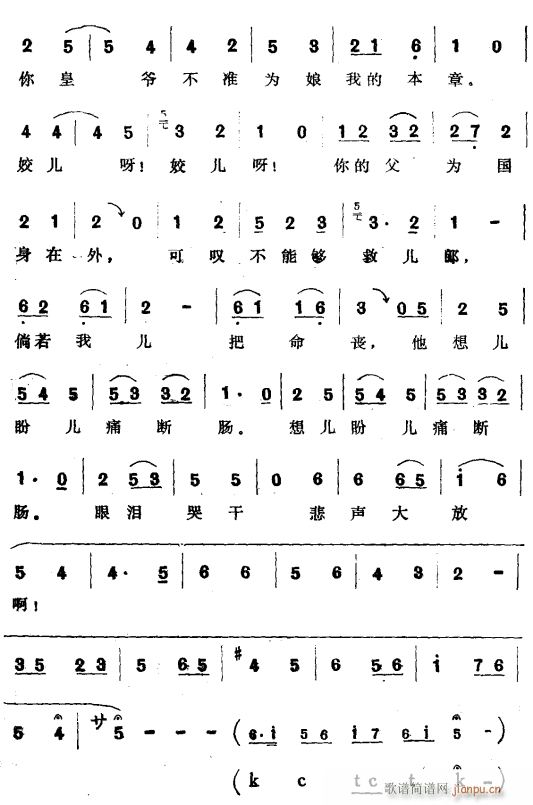 2 5 5 | 4 4 | 4 2 | 5 3 | 2 1 6 | 1 0 |
你皇 爷不准为娘我的本章。
4 4 | 4 5 | 3 2 | 1 0 | 1 2 3 2 | 2 7 2
姣儿 呀!姣儿呀! 你的父 为国
2 1 | 2 0 | 1 2 | 5 2 3 | 3· 2 | 1 - |
身在外, 可叹不能够 救儿郎,
6 2 6 1 | 2 - | 6 1 1 6 | 3 0 5 | 2 5
倘若我 儿 把 命 丧,他想儿
5 4 5 | 5 3 3 2 | 1· 0 | 2 5 | 5 4 5 | 5 3 3 2
盼儿痛断 肠。想儿盼儿痛断
1· 0 | 2 5 3 | 5 5 | 0 6 | 6 6 5 | i 6
肠。 眼泪 哭干 悲声大 放
5 4 | 4· 5 | 6 6 | 5 6 | 4 3 | 2 - |
啊!
3 5 2 3 | 5 6 5 | #4 5 | 6 5 6 | i 7 6 |
5 4 | サ 5 - - - ( 6·i 5 6 i 7 6 i 5 - )
( k c t c t k - )
歌谱简谱网 jianpu.cn